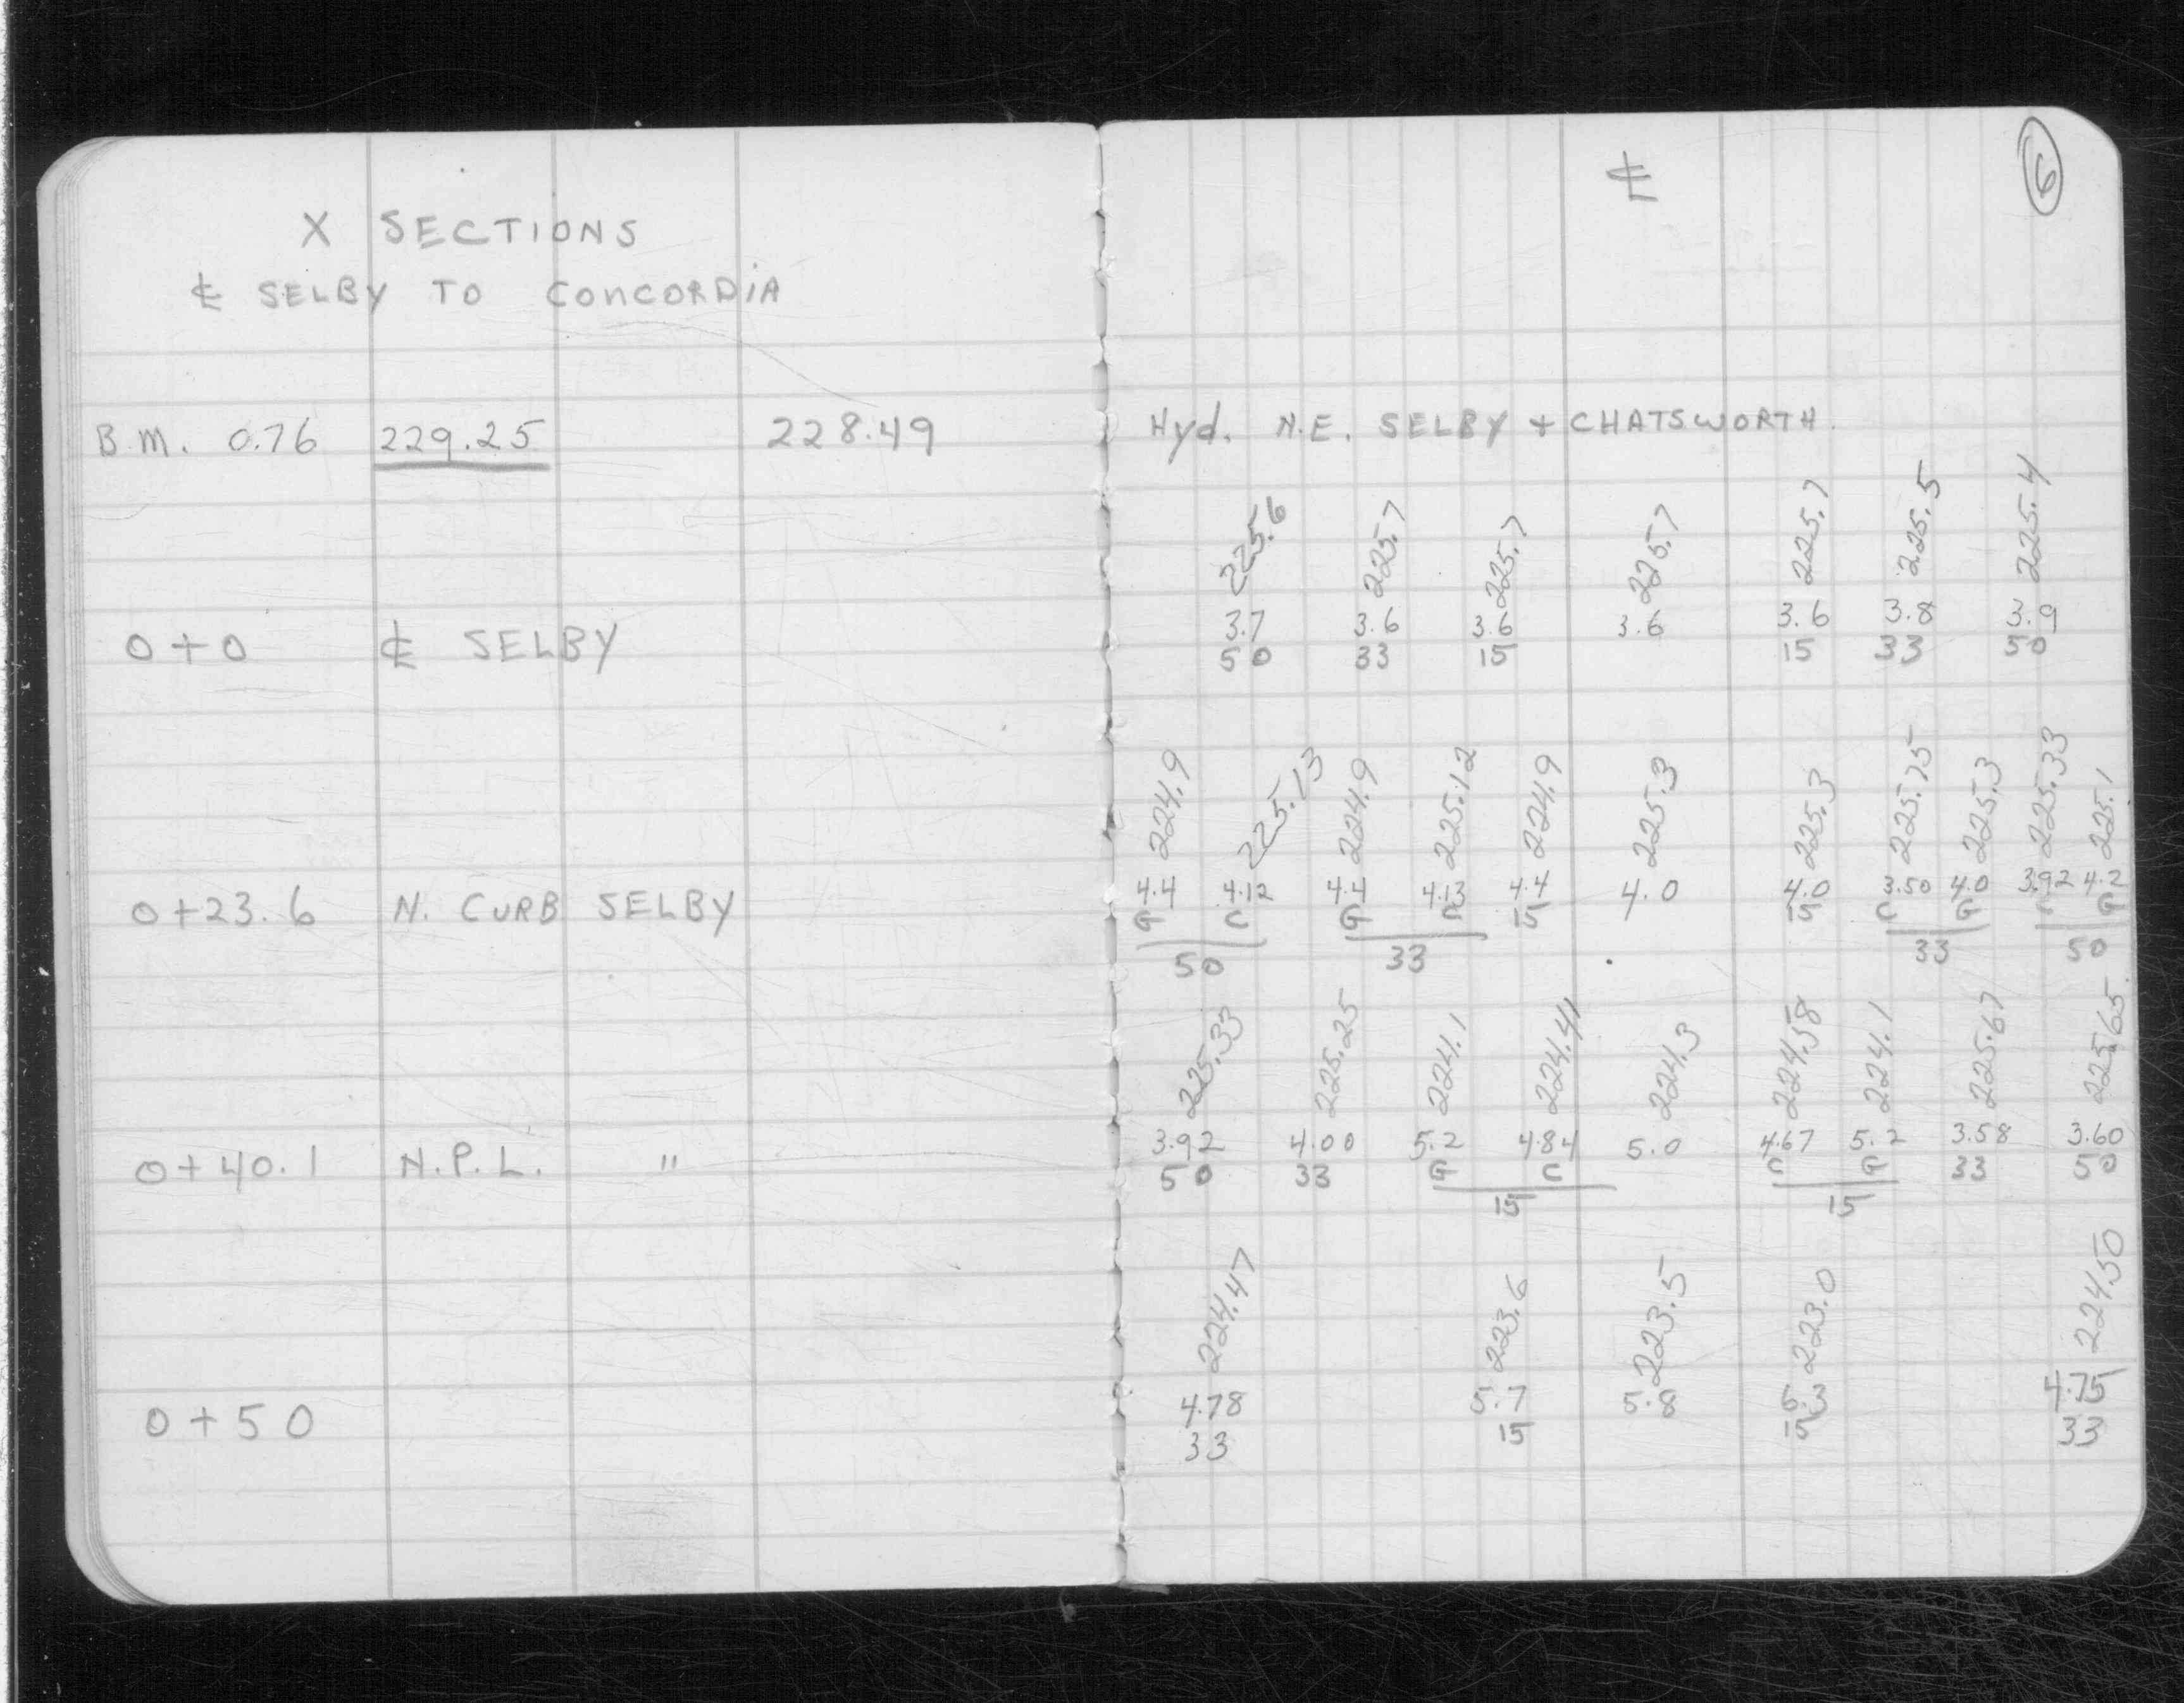 ⑥
℄
X SECTIONS
℄ SELBY TO CONCORDIA
B.M. 0.76 229.25 228.49 Hyd. N.E. SELBY + CHATSWORTH.
225.6 225.7 225.7 225.7 225.7 225.5 225.4
3.7 3.6 3.6 3.6 3.6 3.8 3.9
0+0 ℄ SELBY 50 33 15 15 33 50
224.9 225.13 224.9 225.12 224.9 225.3 225.3 225.75 225.3 225.33 225.1
4.4 4.12 4.4 4.13 4.4 4.0 4.0 3.50 4.0 3.92 4.2
0+23.6 N. CURB SELBY G C G C 15 15 C G C G
50 33 33 50
225.33 225.25 224.1 224.41 224.3 224.58 224.1 225.67 225.65
3.92 4.00 5.2 4.84 5.0 4.67 5.2 3.58 3.60
0+40.1 N.P.L. " 50 33 G C C G 33 50
15 15
224.47 223.6 223.5 223.0 224.50
4.78 5.7 5.8 6.3 4.75
0+50 33 15 15 33